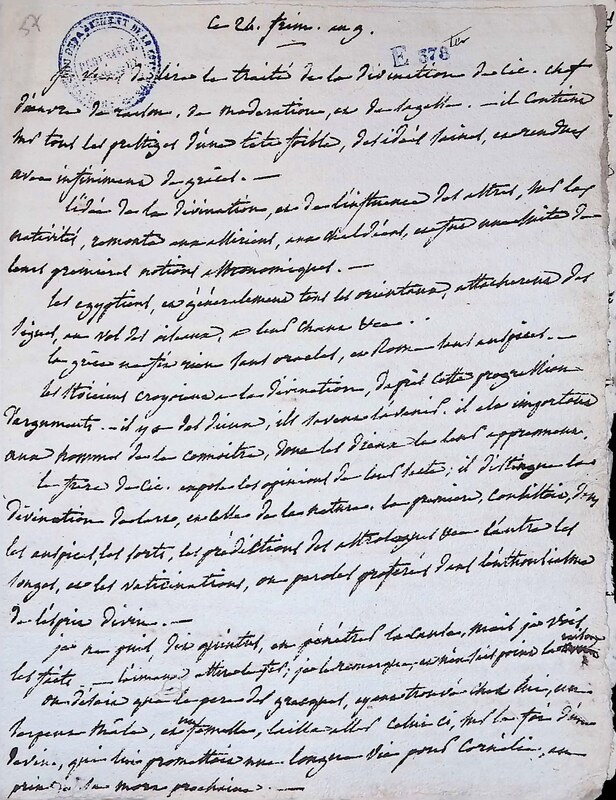 54
Ce 24. frim. an 9.
E 578 ter
je viens de lire le traité de la divination de Cic. chef
d'œuvre de raison, de moderation, et de sagesse. — il contient
tous les prestiges d'une tete foible, des idées saines, et rendues
avec infiniment de grâces. —
l'idée de la divination, et de l'influence des astres, sur les
nativités, remonte aux assiriens, aux chaldéens, et fut une suite de
leurs premieres notions astronomiques. —
les egyptiens, et généralement tous les orientaux, attacherent des
signes, au vol des oiseaux, a leurs chants &ca. . .
la grèce ne fit rien sans oracles, et Rome sans auspices. —
les stoiciens croyoient a la divination, d'après cette progression
d'arguments. — il y a des dieux, ils savent l'avenir. il est important
aux hommes de la connoitre, donc les dieux la leur apprennent.
le frère de Cic. expose les opinions de leur secte; il distingue la
divination de l'art, et celle de la nature. la premiere, consistoit, dans
les auspices, les sorts, les prédictions des astrologues &ca l'autre les
songes, et les vaticinations, ou paroles proferés dans l'enthousiasme
de l'esprit divin. —
je ne puis dit quintus, en pénétrer la cause, mais je vois
les faits. — l'aimant attire le fer; je le remarque, et n'en sais point la raison
on disoit que le pere des gracques, ayant trouvé chez lui, un
serpent mâle, et un femelle, laissa aller celui ci, sur la foi d'un
devin, qui lui promettoit une longue vie pour Cornélie, au
prix de sa mort prochaine. —